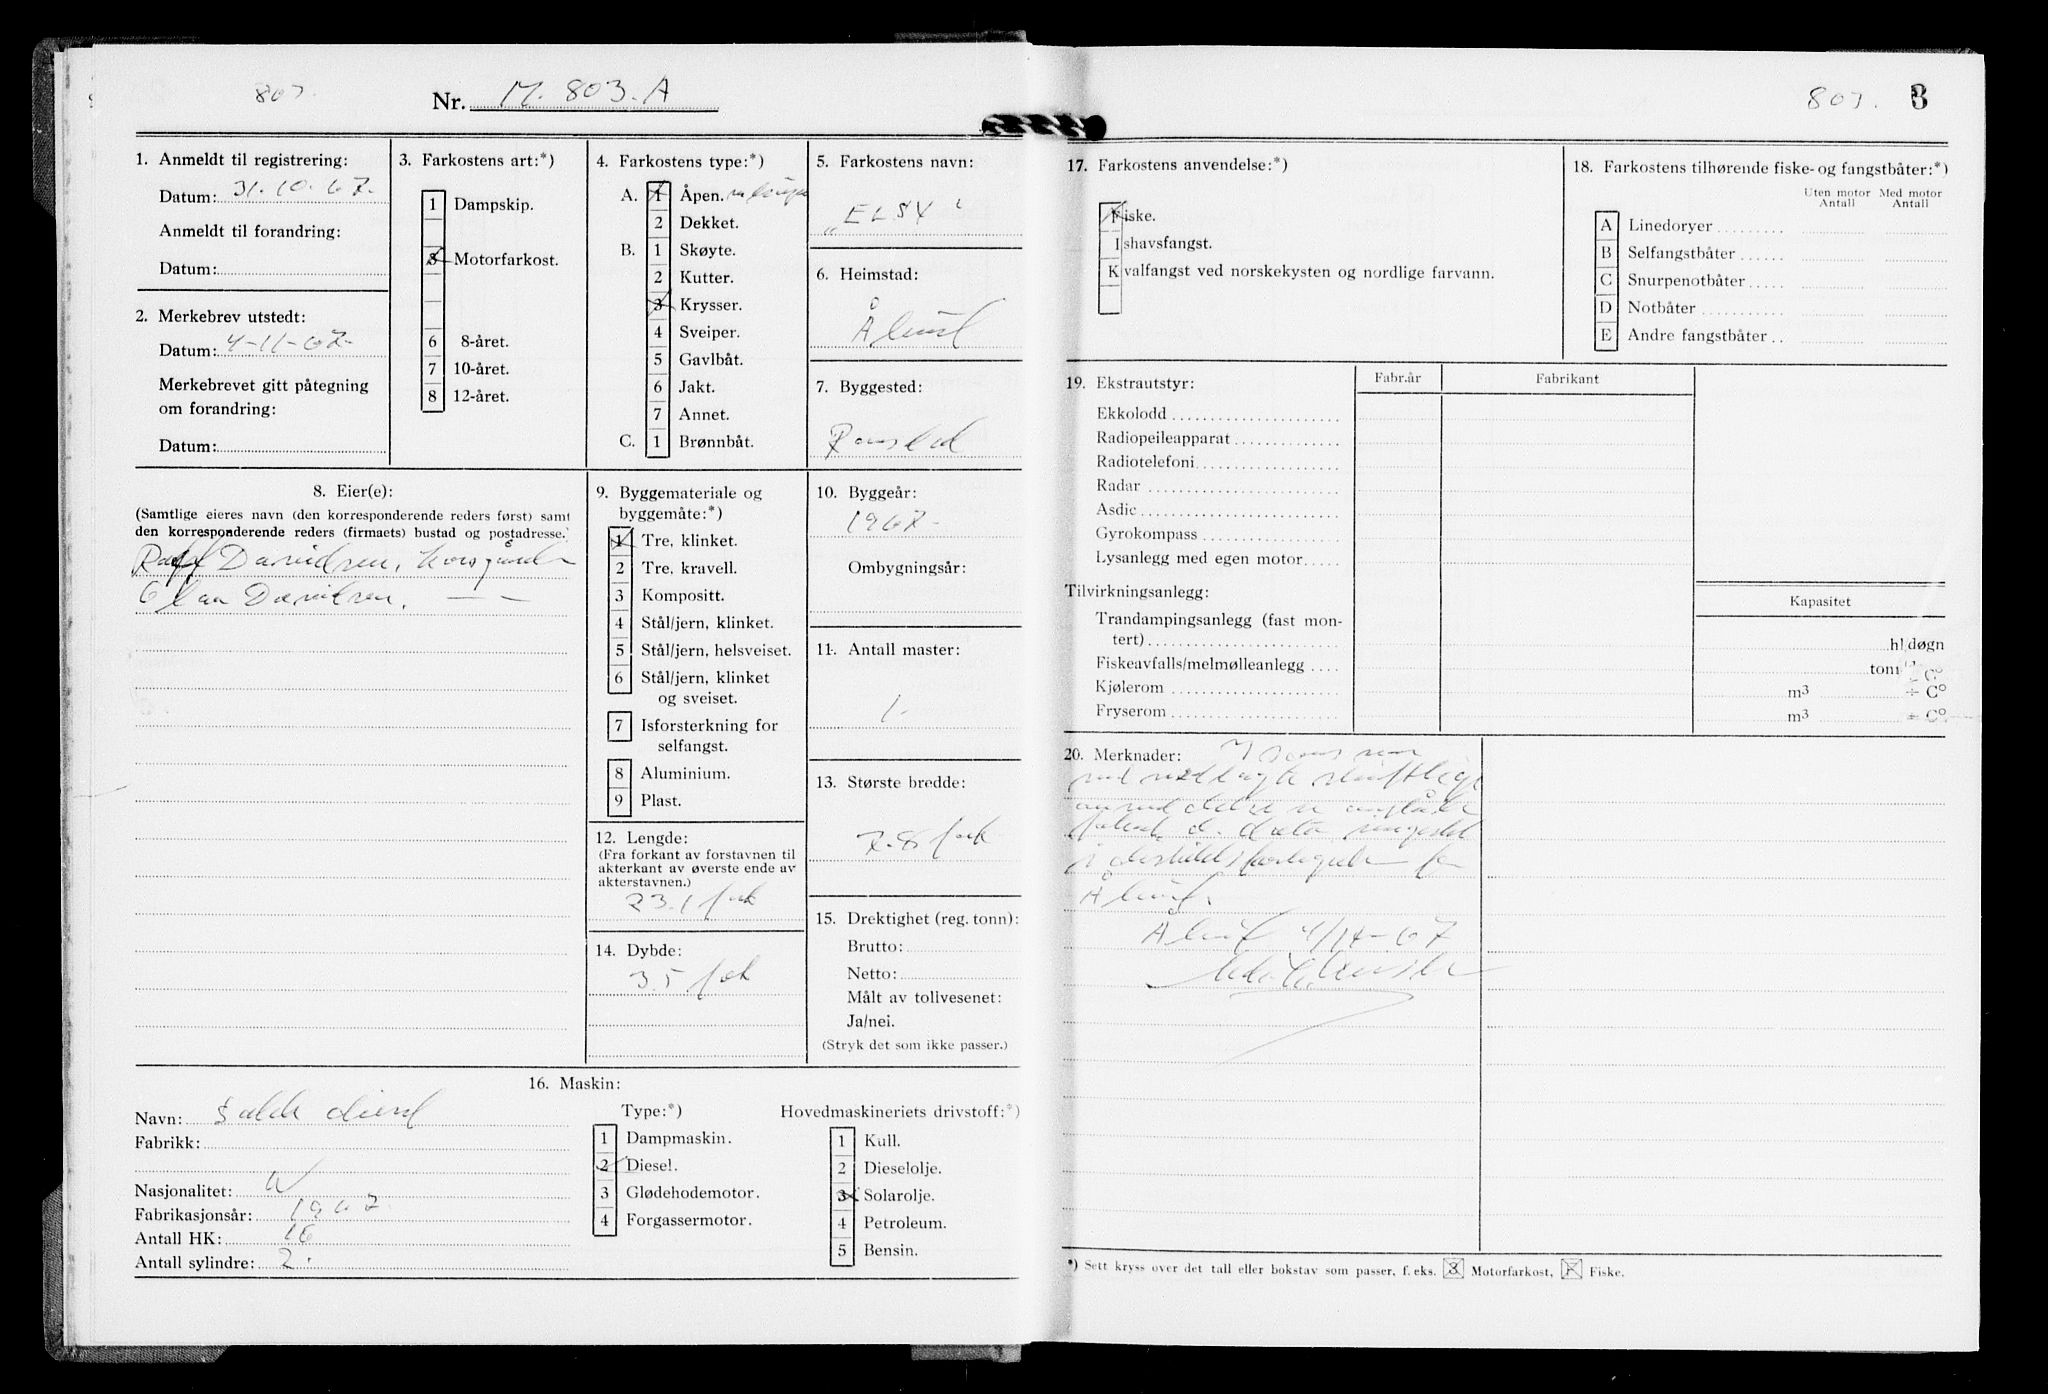 803.
Nr. M. 803. A
1. Anmeldt til registrering:
Datum: 31.10.67.
Anmeldt til forandring:
Datum:
2. Merkebrev utstedt:
Datum: 4-11-67-
Merkebrevet gitt påtegning
om forandring:
Datum:
3. Farkostens art:*)
1 Dampskip.
3 Motorfarkost.
6 8-året.
7 10-året.
8 12-året.
4. Farkostens type:*)
A. 1 Åpen.
2 Dekket.
B. 1 Skøyte.
2 Kutter.
3 Krysser.
4 Sveiper.
5 Gavlbåt.
6 Jakt.
7 Annet.
C. 1 Brønnbåt.
5. Farkostens navn:
„ELSY"
6. Heimstad:
Ålesund
7. Byggested:
8. Eier(e):
(Samtlige eieres navn (den korresponderende reders først) samt
den korresponderende reders (firmaets) bustad og postadresse.)
Davidsen,
Olav Davidsen. — —
9. Byggemateriale og
byggemåte:*)
1 Tre, klinket.
2 Tre, kravell.
3 Kompositt.
4 Stål/jern, klinket.
5 Stål/jern, helsveiset.
6 Stål/jern, klinket
og sveiset.
7 Isforsterkning for
selfangst.
8 Aluminium.
9 Plast.
10. Byggeår:
1967-
Ombygningsår:
11. Antall master:
1.
12. Lengde:
(Fra forkant av forstavnen til
akterkant av øverste ende av
akterstavnen.)
23.1 fot
13. Største bredde:
7.8 fot
14. Dybde:
3.5 fot
15. Drektighet (reg. tonn):
Brutto:
Netto:
Målt av tollvesenet:
Ja/nei.
(Stryk det som ikke passer.)
16. Maskin:
Navn: Sabb diesel
Fabrikk:
Nasjonalitet: N
Fabrikasjonsår: 1967.
Antall HK: 16
Antall sylindre: 2.
Type:*)
1 Dampmaskin.
2 Diesel.
3 Glødehodemotor.
4 Forgassermotor.
Hovedmaskineriets drivstoff:*)
1 Kull.
2 Dieselolje.
3 Solarolje.
4 Petroleum.
5 Bensin.
803. 3
17. Farkostens anvendelse:*)
Fiske.
Ishavsfangst.
Kvalfangst ved norskekysten og nordlige farvann.
18. Farkostens tilhørende fiske- og fangstbåter:*)
Uten motor Med motor
Antall Antall
A Linedoryer
B Selfangstbåter
C Snurpenotbåter
D Notbåter
E Andre fangstbåter
19. Ekstrautstyr: Fabr.år Fabrikant
Ekkolodd
Radiopeileapparat
Radiotelefoni
Radar
Asdic
Gyrokompass
Lysanlegg med egen motor
Tilvirkningsanlegg: Kapasitet
Trandampingsanlegg (fast mon-
tert) hl/døgn
Fiskeavfalls/melmølleanlegg tonn
Kjølerom m³ ÷ C°
Fryserom m³ ÷ C°
20. Merknader:
Ålesund.
Ålesund
*) Sett kryss over det tall eller bokstav som passer, f. eks. 3 Motorfarkost, F Fiske.